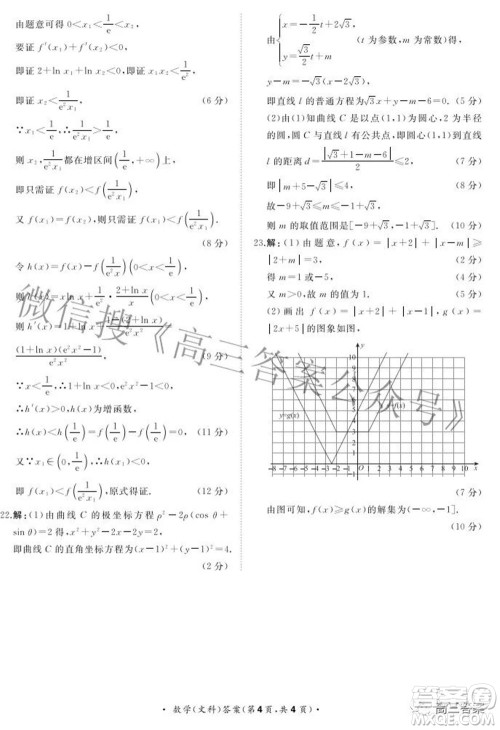 由题意可得 0<x₁<1/e<x₂,
要证 f′(x₁)+f′(x₂)<0,
即证 2+ln x₁+ln x₂<0,
即证 x₂<1/(e²x₁). (6 分)
∵x₁<1/e,∴1/(e²x₁)>1/e,
则 x₂,1/(e²x₁)都在增区间(1/e,+∞)上,
即只需证 f(x₂)<f(1/(e²x₁)),
又 f(x₁)=f(x₂),即只需证 f(x₁)<f(1/(e²x₁)).
(8 分)
令 h(x)=f(x)-f(1/(e²x))(0<x<1/e),
则 h′(x)=1+ln x
(1+ln x)(e²x²-1)/(e²x²). (9 分)
∵x<1/e,∴1+ln x<0,e²x²-1<0,
∴h′(x)>0,h(x)为增函数,
∴h(x)<h(1/e)=0. (11 分)
又∵x₁∈(0,1/e),∴h(x₁)<0,
即 f(x₁)<f(1/(e²x₁)),原式得证. (12 分)
22.解:(1)由曲线 C 的极坐标方程 ρ²-2ρ(cos θ+
sin θ)=2 得,x²+y²-2x-2y=2,
即曲线 C 的直角坐标方程为(x-1)²+(y-1)²=4.
(2 分)
由{x=-1/2t+2√3, y=√3/2t+m (t 为参数,m 为常数)得,
y-m=-√3(x-2√3),
即直线 l 的普通方程为√3x+y-m-6=0. (5 分)
(2)由(1)知曲线 C 是以点(1,1)为圆心,2 为半
径的圆,曲线 C 与直线 l 有公共点,即圆心(1,1)到直线
l 的距离 d=|√3+1-m-6|/2≤2, (7 分)
即|m+5-√3|≤4, (8 分)
故-9+√3≤m≤-1+√3,
则 m 的取值范围是[-9+√3,-1+√3]. (10 分)
23.解:(1)由题意,f(x)=|x+2|+|x-m|≥
|2+m|=3, (2 分)
得 m=1 或 m=-5. (4 分)
又 m>0,故 m 的值为 1. (5 分)
(2)画出 f(x)=|x+2|+|x-1|,g(x)=
|2x+5|的图象如下图.
y
y=g(x)
y=f(x)
-8 -6 -4 -2 0 2 4 6 8 10 x
(7 分)
由图可知,f(x)≥g(x)的解集为(-∞,-1].
(10 分)
微信搜《高三答案公众号》
高三答案
· 数学(文科)答案(第 4 页,共 4 页) ·